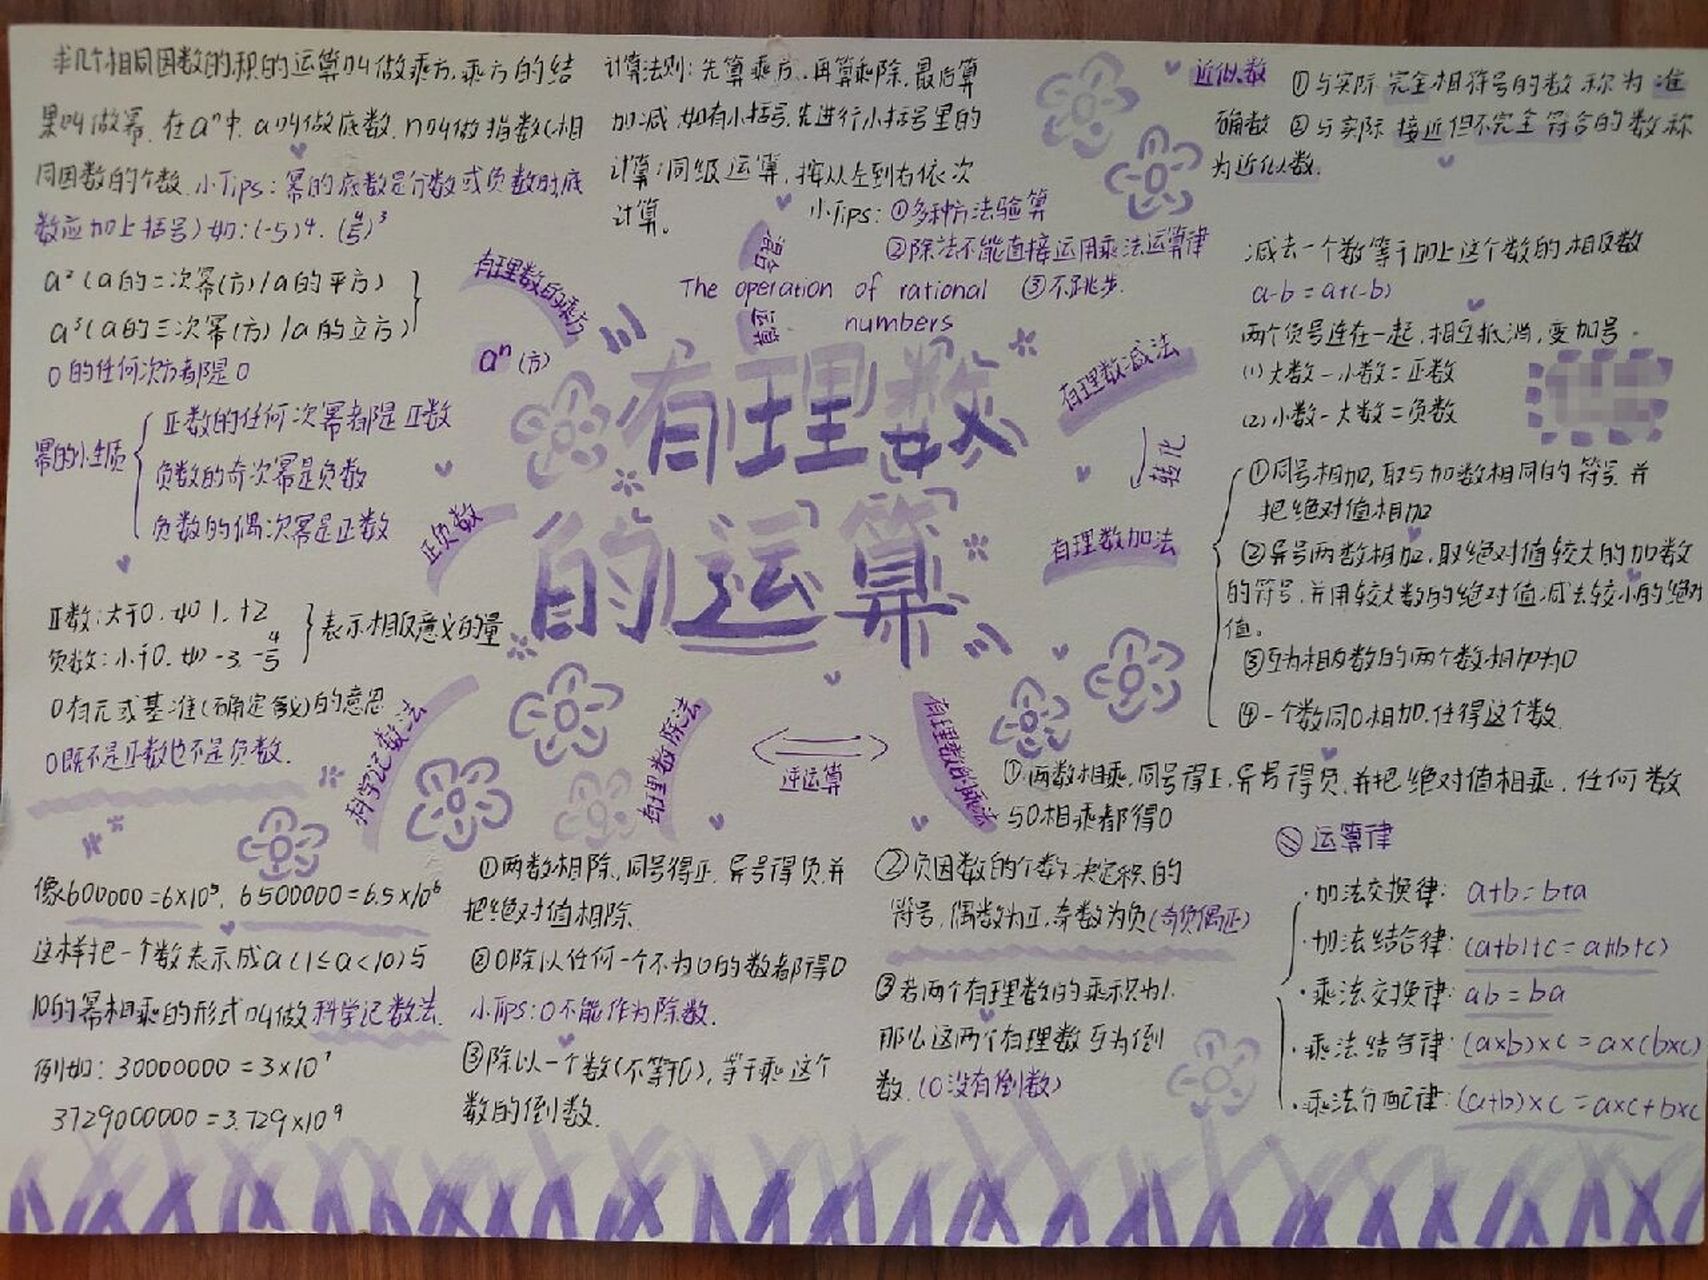 求几个相同因数的积的运算叫做乘方.乘方的结
果叫做幂.在aⁿ中.a叫做底数.n叫做指数(相
同因数的个数.小Tips:幂的底数是分数或负数时,底
数应加上括号)如:(-5)⁴.(4/5)³
a²(a的二次幂(方)/a的平方)
a³(a的三次幂(方)/a的立方)
0的任何次方都是0
幂的小性质
正数的任何次幂都是正数
负数的奇次幂是负数
负数的偶次幂是正数
有理数的乘方
aⁿ(方)
计算法则:先算乘方.再算乘除.最后算
加减.如有小括号,先进行小括号里的
计算;同级运算.按从左到右依次
计算。
小Tips:①多种方法验算
②除法不能直接运用乘法运算律
③不跳步.
混合
运算
The operation of rational
numbers
有理数
的运算
近似数
①与实际完全相符号的数称为准
确数 ②与实际接近但不完全符合的数称
为近似数.
减去一个数等于加上这个数的相反数
a-b=a+(-b)
两个负号连在一起,相互抵消,变加号.
(1)大数-小数=正数
(2)小数-大数=负数
有理数减法
转化
有理数加法
①同号相加,取与加数相同的符号.并
把绝对值相加
②异号两数相加,取绝对值较大的加数
的符号.并用较大数的绝对值减去较小的绝对
值。
③互为相反数的两个数相加为0
④一个数同0相加.仕得这个数.
正负数
正数:大于0.如1.+2
负数:小于0.如-3.-4/5
表示相反意义的量
0有无或基准(确定含义)的意思
0既不是正数也不是负数.
科学记数法
像600000=6×10⁵. 6500000=6.5×10⁶
这样把一个数表示成a(1≤a<10)与
10的幂相乘的形式叫做科学记数法.
例如:30000000=3×10⁷
3729000000=3.729×10⁹
有理数除法
逆运算
有理数的乘法
①两数相除.同号得正.异号得负.并
把绝对值相除.
②0除以任何一个不为0的数都得0
小Tips:0不能作为除数.
③除以一个数(不等于0),等于乘这个
数的倒数.
①两数相乘.同号得正.异号得负.并把绝对值相乘.任何数
与0相乘都得0
②负因数的个数决定积的
符号,偶数为正.奇数为负(奇负偶正)
③若两个有理数的乘积为1.
那么这两个有理数互为倒
数.(0没有倒数)
运算律
·加法交换律:a+b=b+a
·加法结合律:(a+b)+c=a+(b+c)
·乘法交换律:ab=ba
·乘法结合律:(a×b)×c=a×(b×c)
·乘法分配律:(a+b)×c=a×c+b×c